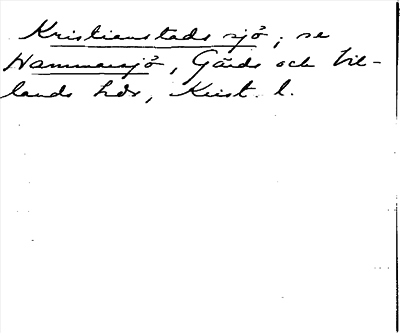 Kristienstads sjö, se
Hammarsjö, Gärds och Vil-
lands hdr, Krist. l.